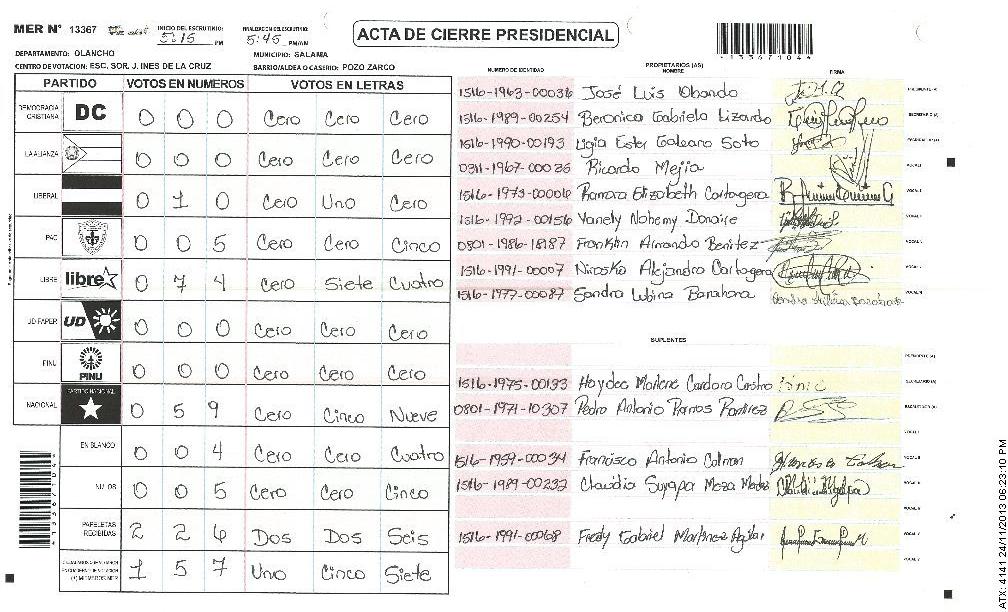 MER N° 13367
INICIO DEL ESCRUTINIO:
5:15 PM
FINALIZACION DEL ESCRUTINIO:
5:45 PM/AM
ACTA DE CIERRE PRESIDENCIAL
*13367104*
DEPARTAMENTO: OLANCHO
MUNICIPIO: SALAMA
CENTRO DE VOTACION: ESC. SOR. J. INES DE LA CRUZ
BARRIO/ALDEA O CASERIO: POZO ZARCO
PARTIDO VOTOS EN NUMEROS VOTOS EN LETRAS
DEMOCRACIA CRISTIANA DC 0 0 0 Cero Cero Cero
LA ALIANZA 0 0 0 Cero Cero Cero
LIBERAL 0 1 0 Cero Uno Cero
PAC 0 0 5 Cero Cero Cinco
LIBRE libre 0 7 4 Cero Siete Cuatro
UD FAPER UD 0 0 0 Cero Cero Cero
PINU PINU 0 0 0 Cero Cero Cero
NACIONAL PARTIDO NACIONAL 0 5 9 Cero Cinco Nueve
EN BLANCO 0 0 4 Cero Cero Cuatro
NULOS 0 0 5 Cero Cero Cinco
PAPELETAS RECIBIDAS 2 2 6 Dos Dos Seis
(+) MIEMBROS MER 1 5 7 Uno Cinco Siete
*13367104*
NUMERO DE IDENTIDAD PROPIETARIOS (AS) NOMBRE FIRMA
1516-1963-00036 José Luis Obando PRESIDENTE (A)
1516-1989-00254 Beronica Gabriela Lizardo SECRETARIO (A)
1516-1990-00193 Ligia Ester Galeano Soto
0311-1967-00026 Ricardo Mejia VOCAL I
1516-1973-00006 Ramora Elizabeth Cartagena
1516-1992-00156 Yanely Nohemy Donaire
0801-1986-18187 Franklin Armando Benitez
1516-1991-00007 Nirosko Alejandro Cartagena
1516-1977-00087 Sandra Banahona
SUPLENTES
PRESIDENTE (A)
1516-1975-00193 Haydee Marlene Cardora Castro SECRETARIO (A)
0801-1971-10307 Pedro Antonio Ramos Ramirez
1516-1959-00034 Francisco Antonio Colman
1516-1989-00232 Claudia Suyapa Meza
1516-1991-00068 Fredy Gabriel Martinez Aguilar
ATX: 4141 24/11/2013 06:23:10 PM